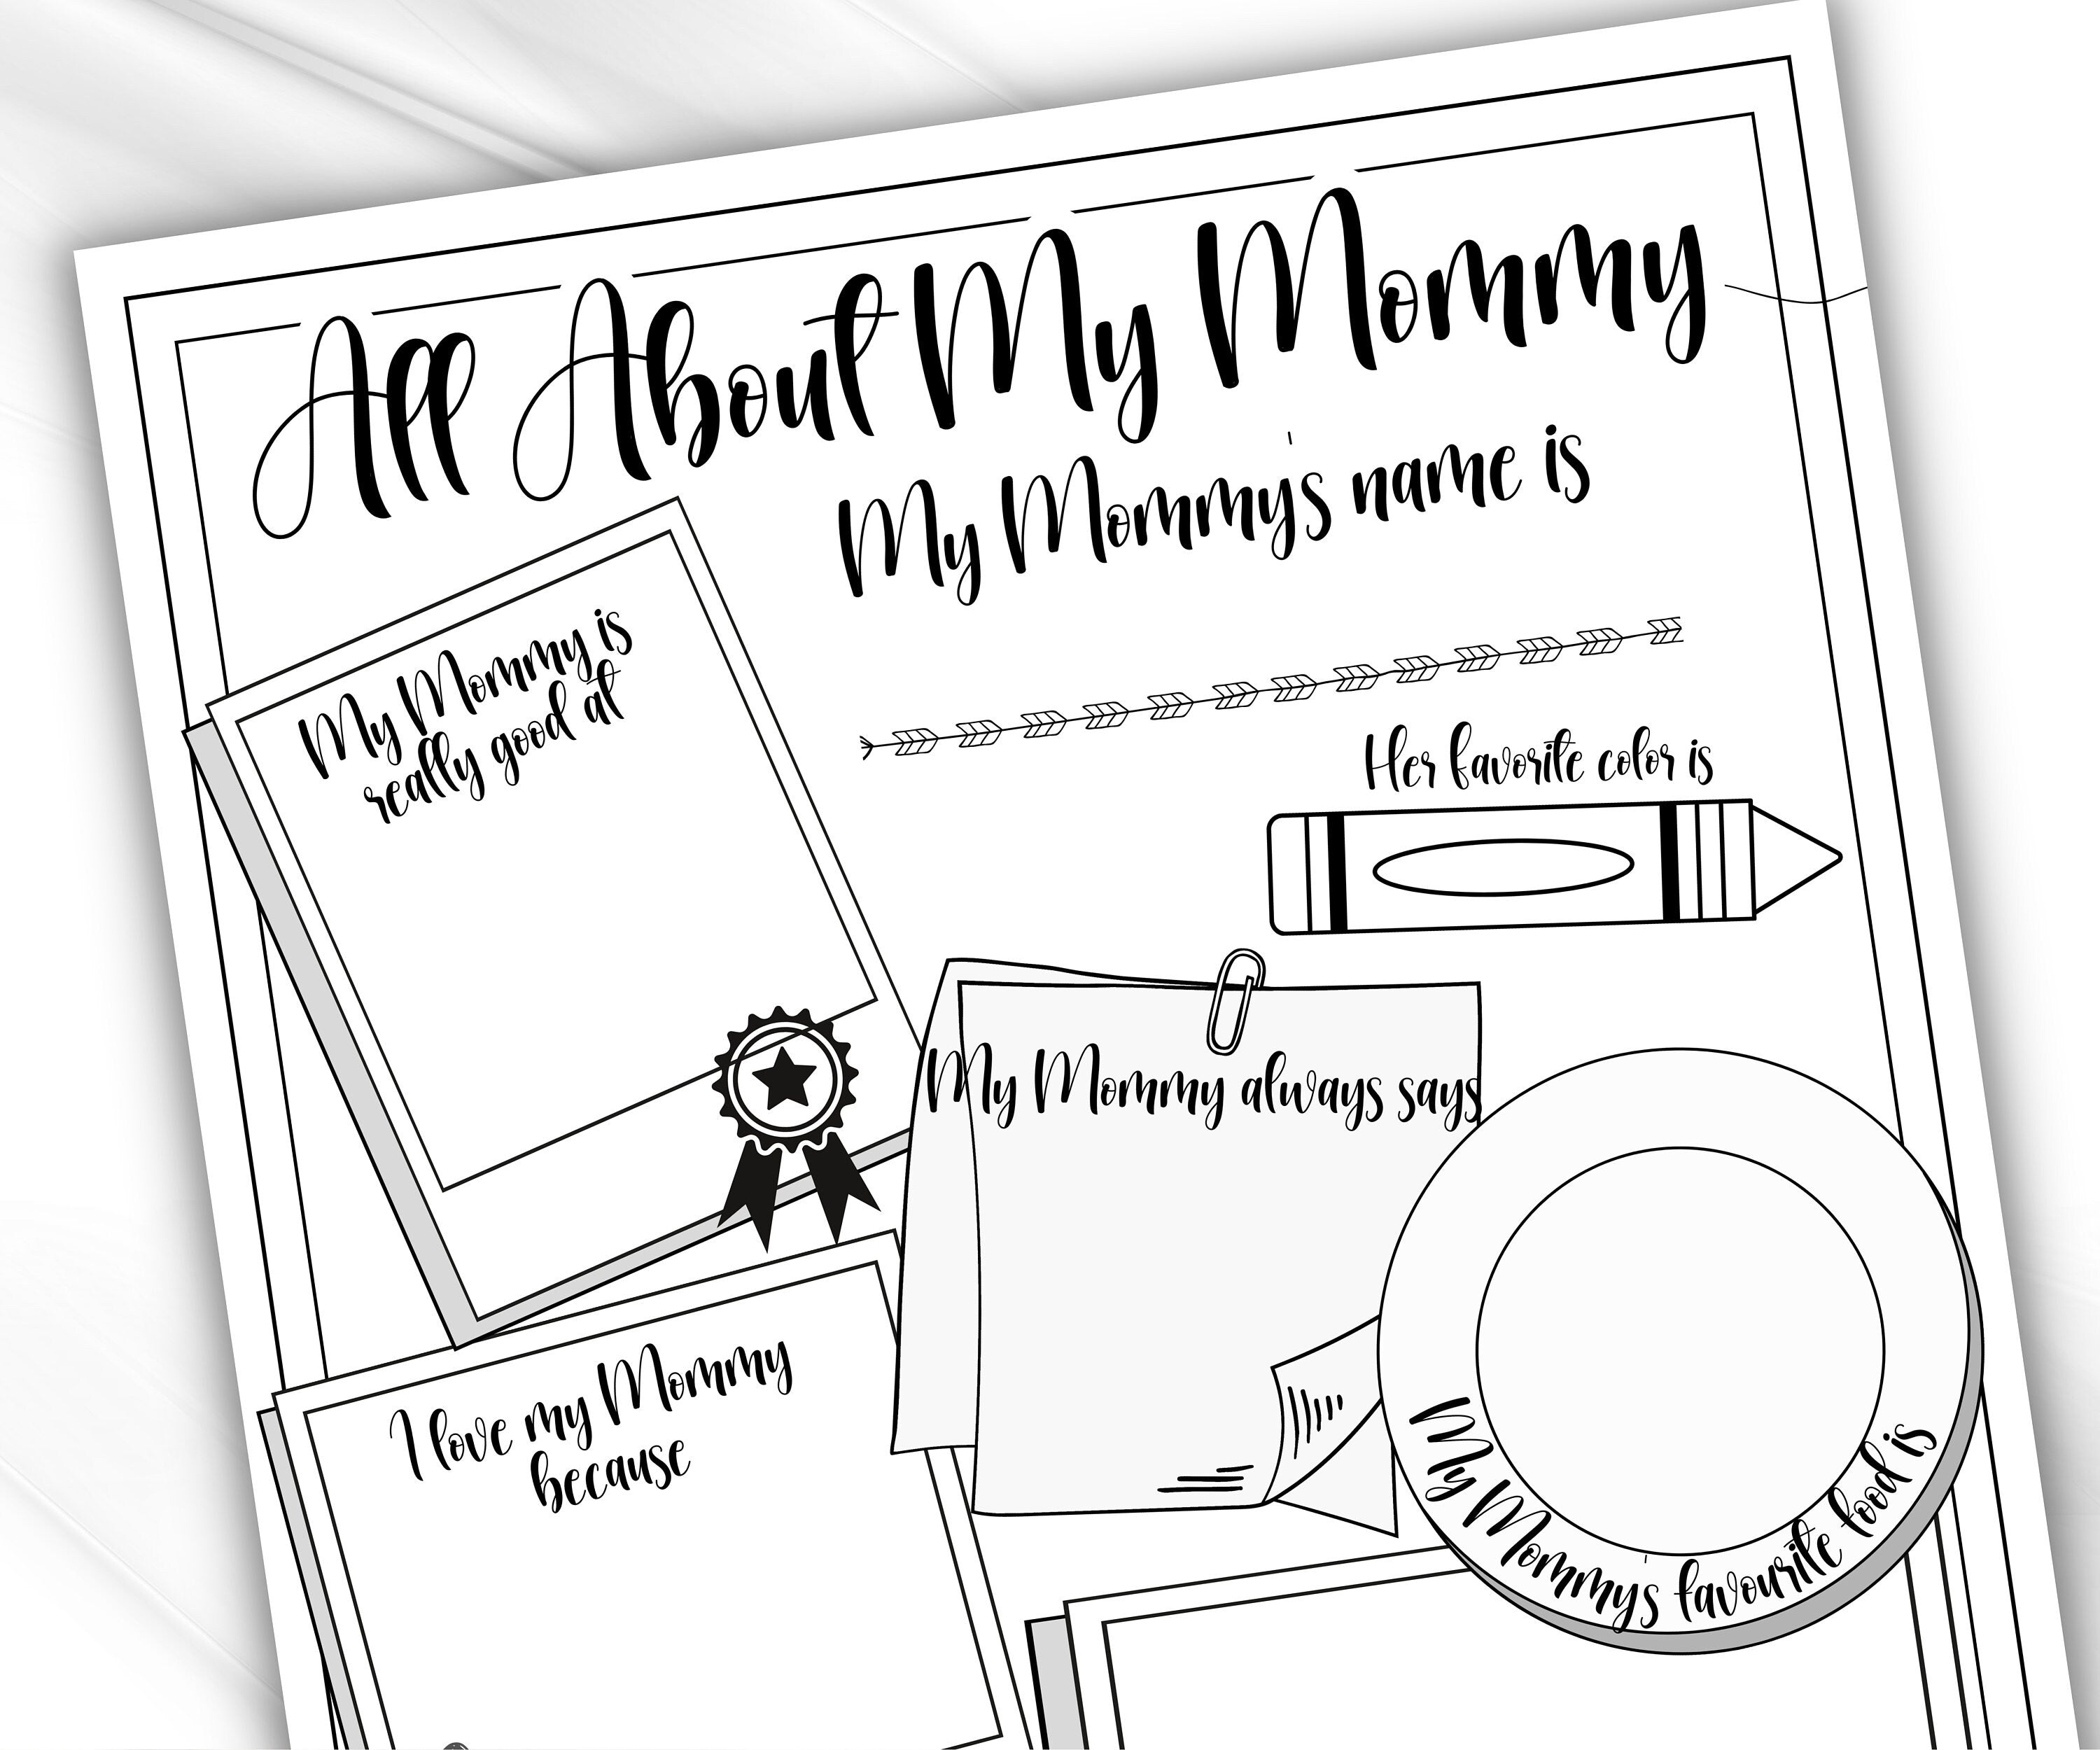 All About My Mommy
My Mommy's name is
My Mommy is
really good at
Her favorite color is
My Mommy always says
My Mommy's favourite food is
I love my Mommy
because